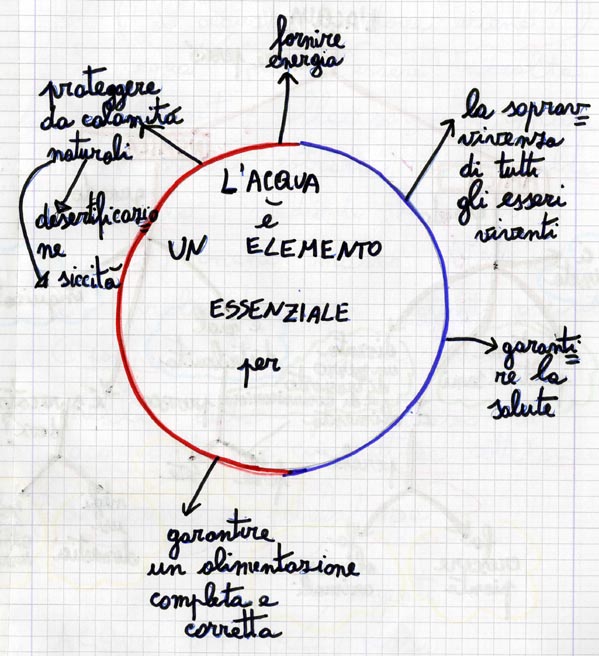 fornire
energia
proteggere
da calamità
naturali
desertificazio
ne
siccità
la soprav
vivenza
di tutti
gli esseri
viventi
L'ACQUA
è
UN ELEMENTO
ESSENZIALE
per
garanti
re la
salute
garantire
un alimentazione
completa e
corretta